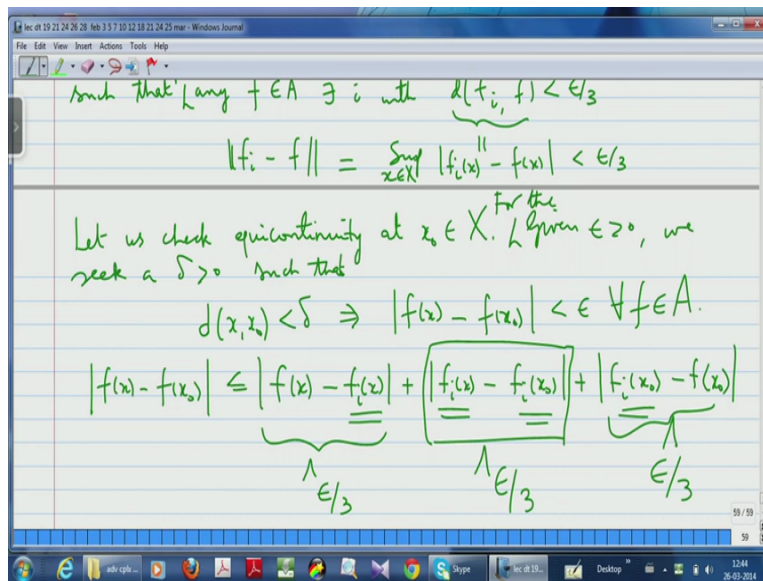 lec dt 19 21 24 26 28 feb 3 5 7 10 12 18 21 24 25 mar - Windows Journal
File Edit View Insert Actions Tools Help
such that any f ∈ A ∃ i with d(f_i, f) < ε/3
||f_i - f|| = Sup_{x∈X} |f_i(x) - f(x)| < ε/3
Let us check equicontinuity at x_0 ∈ X. For the given ε>0, we
seek a δ>0 such that
d(x, x_0) < δ ⇒ |f(x) - f(x_0)| < ε ∀ f ∈ A.
|f(x) - f(x_0)| ≤ |f(x) - f_i(x)| + |f_i(x) - f_i(x_0)| + |f_i(x_0) - f(x_0)|
∧ ε/3 ∧ ε/3 ∧ ε/3
59 / 59
59
adv cplx ...
Skype
lec dt 19...
Desktop
12:44
26-03-2014